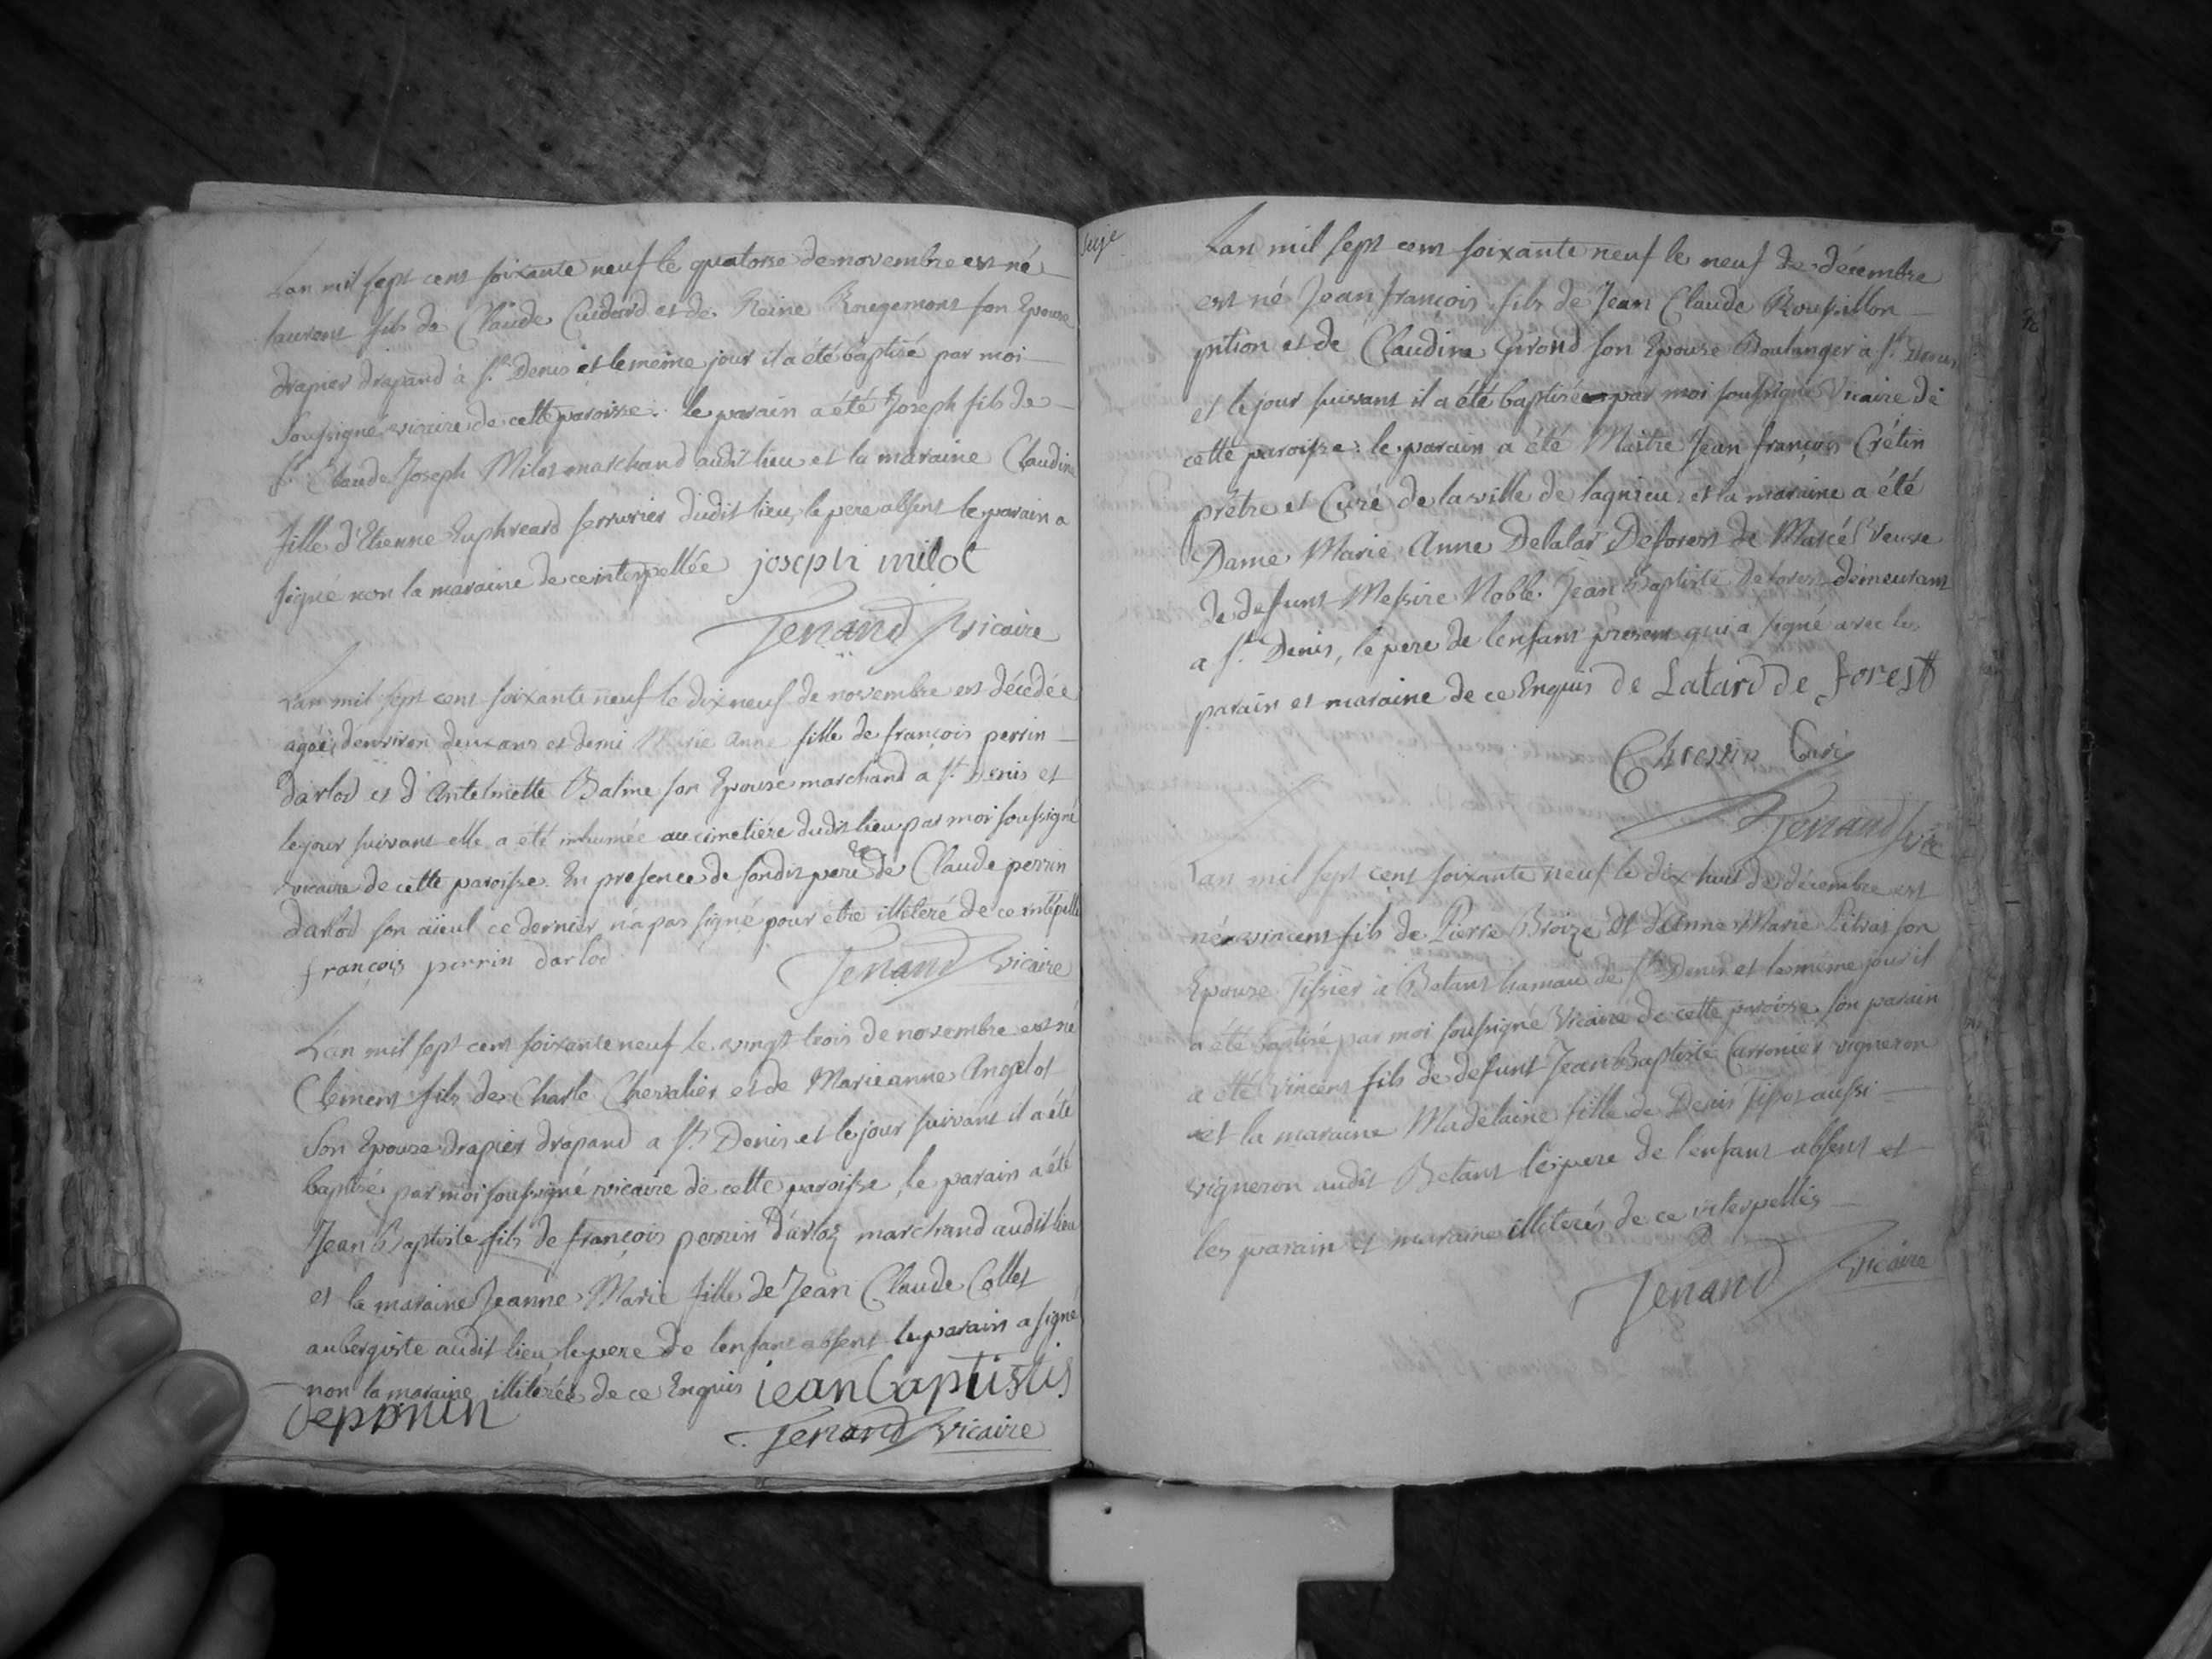 Lan mil sept cent soixante neuf le quatorse de novembre est né
laurent fils de Claude Cuidard et de Reine Rougemont son Epouse
drapier drapand à St Denis et le même jour il a été baptisé par moi
Soussigné vicaire de cette paroisse. le parain a été Joseph fils de
Sr Claude Joseph Milot marchand audit lieu et la maraine Claudine
fille d'Etienne serrurier dudit lieu, le pere absent le parain a
signé non la maraine de ce interpellée joseph milot
Jenand vicaire
Lan mil sept cent soixante neuf le dix neuf de novembre est décédée
agée d'environ deux ans et demi Marie Anne fille de françois perrin
darlod et d'Antelmette Balme son Epouse marchand a St Denis et
le jour suivant elle a été inhumée au cimetiére dudit lieu par moi soussigné
vicaire de cette paroisse. En presence de sondit pere de Claude perrin
darlod son aïeul ce dernier n'a pas signé pour être illiteré de ce
françois perrin darlod Jenand vicaire
Lan mil sept cent soixante neuf le vingt trois de novembre est né
Clement fils de Charle Chevalier et de Marieanne Angelot
Son Epouse drapier drapand a St Denis et le jour suivant il a été
baptisé par moi soussigné vicaire de cette paroisse, le parain a été
Jean Baptiste fils de françois perrin d'arlod marchand audit lieu
et la maraine Jeanne Marie fille de Jean Claude Collet
aubergiste audit lieu, le pere de lenfant absent le parain a signé
non la maraine illiterée de ce Enquis jean
Jenand vicaire
Lan mil sept cent soixante neuf le neuf de décembre
est né Jean françois fils de Jean Claude Roussillon
pition et de Claudine Girond son Epouse Boulanger à St Denis,
et le jour suivant il a été baptisé par moi soussigné Vicaire de
cette paroisse: le parain a été Maître Jean françois Crétin
prêtre et Curé de la ville de lagnieu et la maraine a été
Dame Marie Anne Delatar Deforest de Veuve
de defunt Messire Noble Jean Baptiste Deforest demeurant
a St Denis, le pere de lenfant present qui a signé avec les
parain et maraine de ce Enquis de Latard de forest
Curé
Jenand
Lan mil sept cent soixante neuf le dix huit de décembre est
né vincent fils de Pierre Broize et d'Anne Marie son
Epouse Tissier à Betant hamau de St Denis et le même jour il
a été baptisé par moi soussigné Vicaire de cette paroisse, son parain
a été Vincent fils de defunt Jean Baptiste Carronier vigneron
et la maraine Madelaine fille de Denis aussi
vigneron audit Betant le pere de l'enfant absent et
les parain et maraine illiterés de ce interpellés
Jenand Vicaire